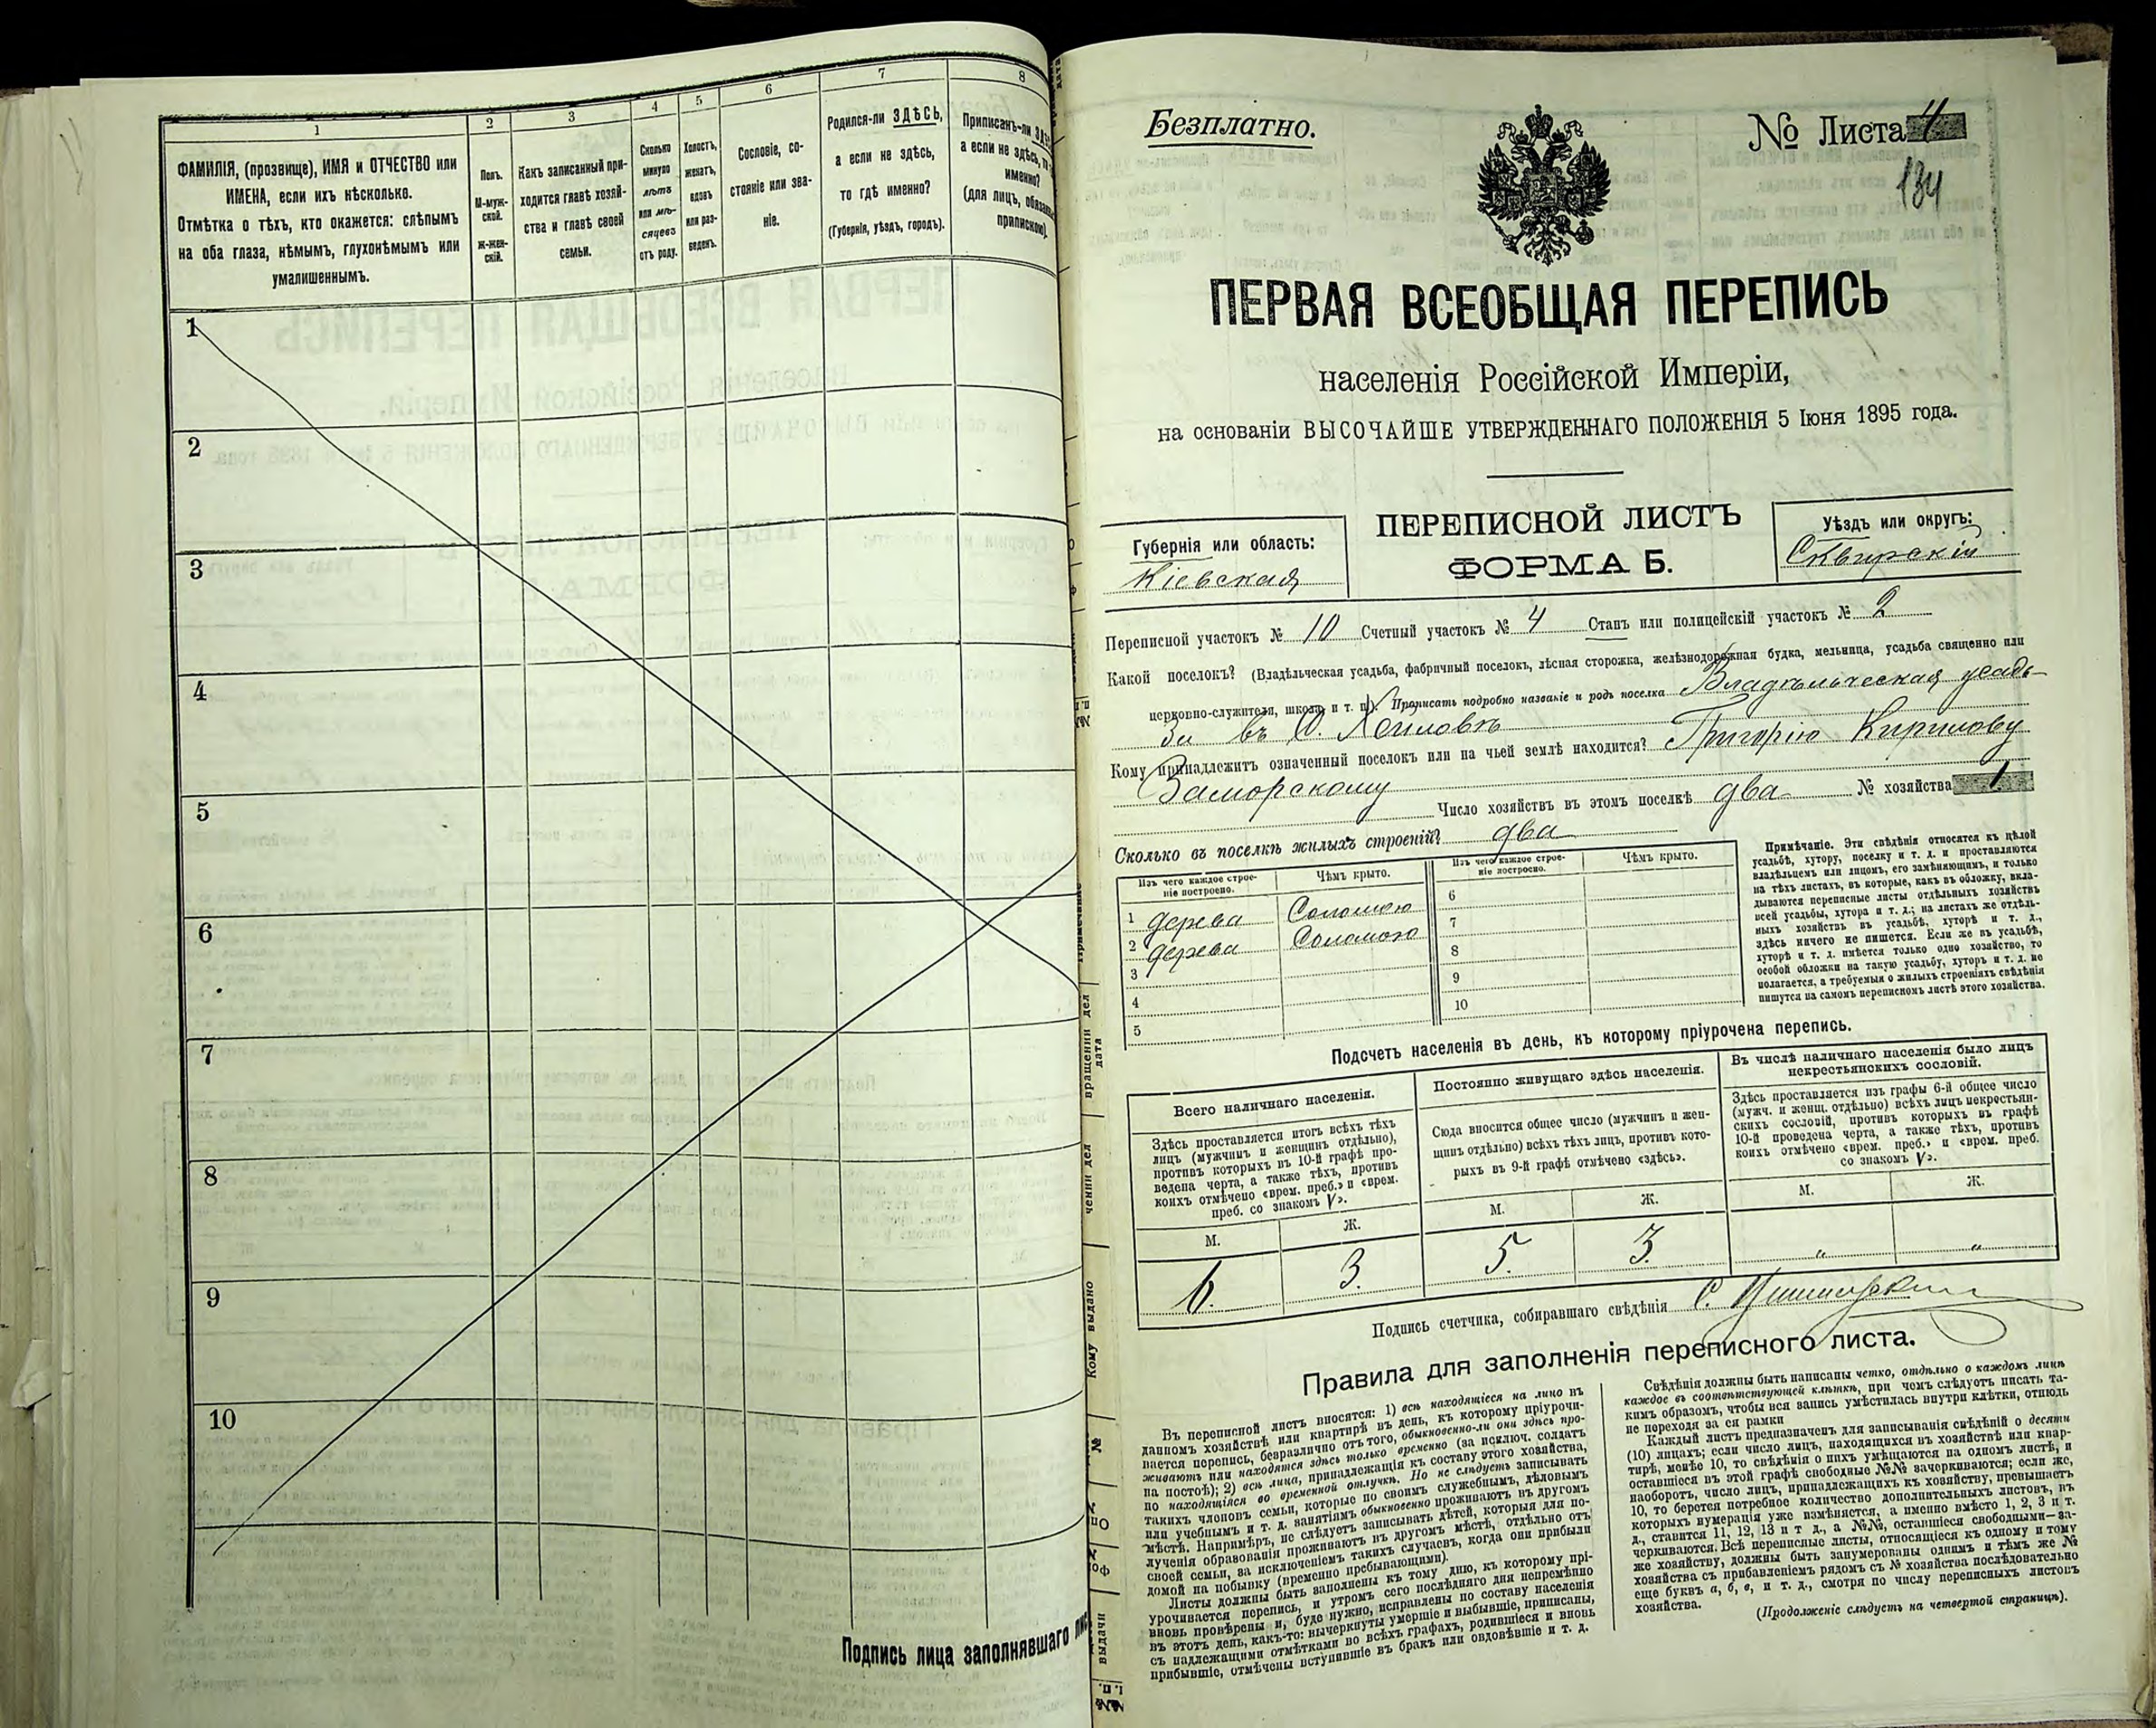 1
2
3
4
5
6
7
8
ФАМИЛІЯ, (прозвище), ИМЯ и ОТЧЕСТВО или
ИМЕНА, если ихъ нѣсколько.
Отмѣтка о тѣхъ, кто окажется: слѣпымъ
на оба глаза, нѣмымъ, глухонѣмымъ или
умалишеннымъ.
Полъ.
М-муж-
ской.
Ж-жен-
скій.
Какъ записанный при-
ходится главѣ хозяй-
ства и главѣ своей
семьи.
Сколько
минуло
лѣтъ
или мѣ-
сяцевъ
отъ роду.
Холостъ,
женатъ,
вдовъ
или раз-
веденъ.
Сословіе, со-
стояніе или зва-
ніе.
Родился-ли ЗДѢСЬ,
а если не здѣсь,
то гдѣ именно?
(Губернія, уѣздъ, городъ).
Приписанъ-ли
а если не здѣсь,
именно?
(для лицъ,
припискою).
1
2
3
4
5
6
7
8
9
10
Подпись лица заполнявшаго
Безплатно.
№ Листа 4
134
ПЕРВАЯ ВСЕОБЩАЯ ПЕРЕПИСЬ
населенія Россійской Имперіи,
на основаніи ВЫСОЧАЙШЕ УТВЕРЖДЕННАГО ПОЛОЖЕНІЯ 5 Іюня 1895 года.
Губернія или область:
Кіевская
ПЕРЕПИСНОЙ ЛИСТЪ
ФОРМА Б.
Уѣздъ или округъ:
Сквирскій
Переписной участокъ № 10 Счетный участокъ № 4 Станъ или полицейскій участокъ № 2
Какой поселокъ? (Владѣльческая усадьба, фабричный поселокъ, лѣсная сторожка, желѣзнодорожная будка, мельница, усадьба священно или
церковно-служителя, школа, и т. п.). Прописать подробно названіе и родъ поселка Владѣльческая усадь-
въ
Кому принадлежитъ означенный поселокъ или на чьей землѣ находится? Григорію Кирилову
Заморскому
Число хозяйствъ въ этомъ поселкѣ два № хозяйства 1
Сколько въ поселкѣ жилыхъ строеній? два
Изъ чего каждое строе-
ніе построено.
Чѣмъ крыто.
Изъ чего каждое строе-
ніе построено.
Чѣмъ крыто.
1 дерева Соломою
2 дерева Соломою
3
4
5
6
7
8
9
10
Примѣчаніе. Эти свѣдѣнія относятся къ цѣлой
усадьбѣ, хутору, поселку и т. д. и проставляются
владѣльцемъ или лицомъ, его замѣняющимъ, и только
на тѣхъ листахъ, въ которые, какъ въ обложку, вкла-
дываются переписные листы отдѣльныхъ хозяйствъ
всей усадьбы, хутора и т. д.; на листахъ же отдѣль-
ныхъ хозяйствъ въ усадьбѣ, хуторѣ и т. д.,
здѣсь ничего не пишется. Если же въ усадьбѣ,
хуторѣ и т. д. имѣется только одно хозяйство, то
особой обложки на такую усадьбу, хуторъ и т. д. не
полагается, а требуемыя о жилыхъ строеніяхъ свѣдѣнія
пишутся на самомъ переписномъ листѣ этого хозяйства.
Подсчетъ населенія въ день, къ которому пріурочена перепись.
Всего наличнаго населенія.
Здѣсь проставляется итогъ всѣхъ тѣхъ
лицъ (мужчинъ и женщинъ отдѣльно),
противъ которыхъ въ 10-й графѣ про-
ведена черта, а также тѣхъ, противъ
коихъ отмѣчено «врем. преб.» и «врем.
преб. со знакомъ V».
Постоянно живущаго здѣсь населенія.
Сюда вносится общее число (мужчинъ и жен-
щинъ отдѣльно) всѣхъ тѣхъ лицъ, противъ кото-
рыхъ въ 9-й графѣ отмѣчено «здѣсь».
Въ числѣ наличнаго населенія было лицъ
некрестьянскихъ сословій.
Здѣсь проставляется изъ графы 6-й общее число
(мужч. и женщ. отдѣльно) всѣхъ лицъ некрестьян-
скихъ сословій, противъ которыхъ въ графѣ
10-й проведена черта, а также тѣхъ, противъ
коихъ отмѣчено «врем. преб.» и «врем. преб.
со знакомъ V».
М. Ж. М. Ж. М. Ж.
6. 3. 5. 3. " "
Подпись счетчика, собиравшаго свѣдѣнія С.
Правила для заполненія переписного листа.
Въ переписной листъ вносятся: 1) всѣ находящіеся на лицо въ
данномъ хозяйствѣ или квартирѣ въ день, къ которому пріурочи-
вается перепись, безразлично отъ того, обыкновенно-ли они здѣсь про-
живаютъ или находятся здѣсь только временно (за исключ. солдатъ
на постоѣ); 2) всѣ лица, принадлежащія къ составу этого хозяйства,
но находящіяся во временной отлучкѣ. Но не слѣдуетъ записывать
такихъ членовъ семьи, которые по своимъ служебнымъ, дѣловымъ
или учебнымъ и т. д. занятіямъ обыкновенно проживаютъ въ другомъ
мѣстѣ. Напримѣръ, не слѣдуетъ записывать дѣтей, которыя для по-
лученія образованія проживаютъ въ другомъ мѣстѣ, отдѣльно отъ
своей семьи, за исключеніемъ такихъ случаевъ, когда они прибыли
домой на побывку (временно пребывающими).
Листы должны быть заполнены къ тому дню, къ которому прі-
урочивается перепись, и утромъ сего послѣдняго дня непремѣнно
вновь провѣрены и, буде нужно, исправлены по составу населенія
въ этотъ день, какъ-то: вычеркнуты умершіе и выбывшіе, приписаны,
съ надлежащими отмѣтками во всѣхъ графахъ, родившіеся и вновь
прибывшіе, отмѣчены вступившіе въ бракъ или овдовѣвшіе и т. д.
Свѣдѣнія должны быть написаны четко, отдѣльно о каждомъ лицѣ
каждое въ соотвѣтствующей клѣткѣ, при чемъ слѣдуетъ писать та-
кимъ образомъ, чтобы вся запись умѣстилась внутри клѣтки, отнюдь
не переходя за ея рамки
Каждый листъ предназначенъ для записыванія свѣдѣній о десяти
(10) лицахъ; если число лицъ, находящихся въ хозяйствѣ или квар-
тирѣ, менѣе 10, то свѣдѣнія о нихъ умѣщаются на одномъ листѣ, и
оставшіеся въ этой графѣ свободные №№ зачеркиваются; если же,
наоборотъ, число лицъ, принадлежащихъ къ хозяйству, превышаетъ
10, то берется потребное количество дополнительныхъ листовъ, въ
которыхъ нумерація уже измѣняется, а именно вмѣсто 1, 2, 3 и т.
д., ставится 11, 12, 13 и т д., а №№, оставшіеся свободными—за-
черкиваются. Всѣ переписные листы, относящіеся къ одному и тому
же хозяйству, должны быть занумерованы однимъ и тѣмъ же №
хозяйства съ прибавленіемъ рядомъ съ № хозяйства послѣдовательно
еще буквъ а, б, в, и т. д., смотря по числу переписныхъ листовъ
хозяйства.
(Продолженіе слѣдуетъ на четвертой страницѣ).